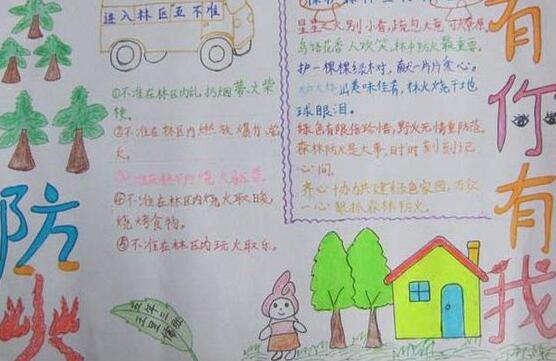 进入林区五不准
①不准在林区内乱扔烟蒂、火柴
梗。
②不准在林区内燃放爆竹、焰
火。
④不准在林区内烧火取暖
烧烤食物。
⑤不准在林区内玩火取乐。
星星之火别小看,
鸟语花香人欢笑,林中防火最重要。
护一棵棵绿树,献一片片爱心。
山美味佳肴,林火烧干地
球眼泪。
绿色有限倍珍惜,野火无情重防范。
森林防火是大事,时时刻刻记
心间。
齐心协力共建绿色家园,万众
一心狠抓森林防火。
防
火
有
你
有
我